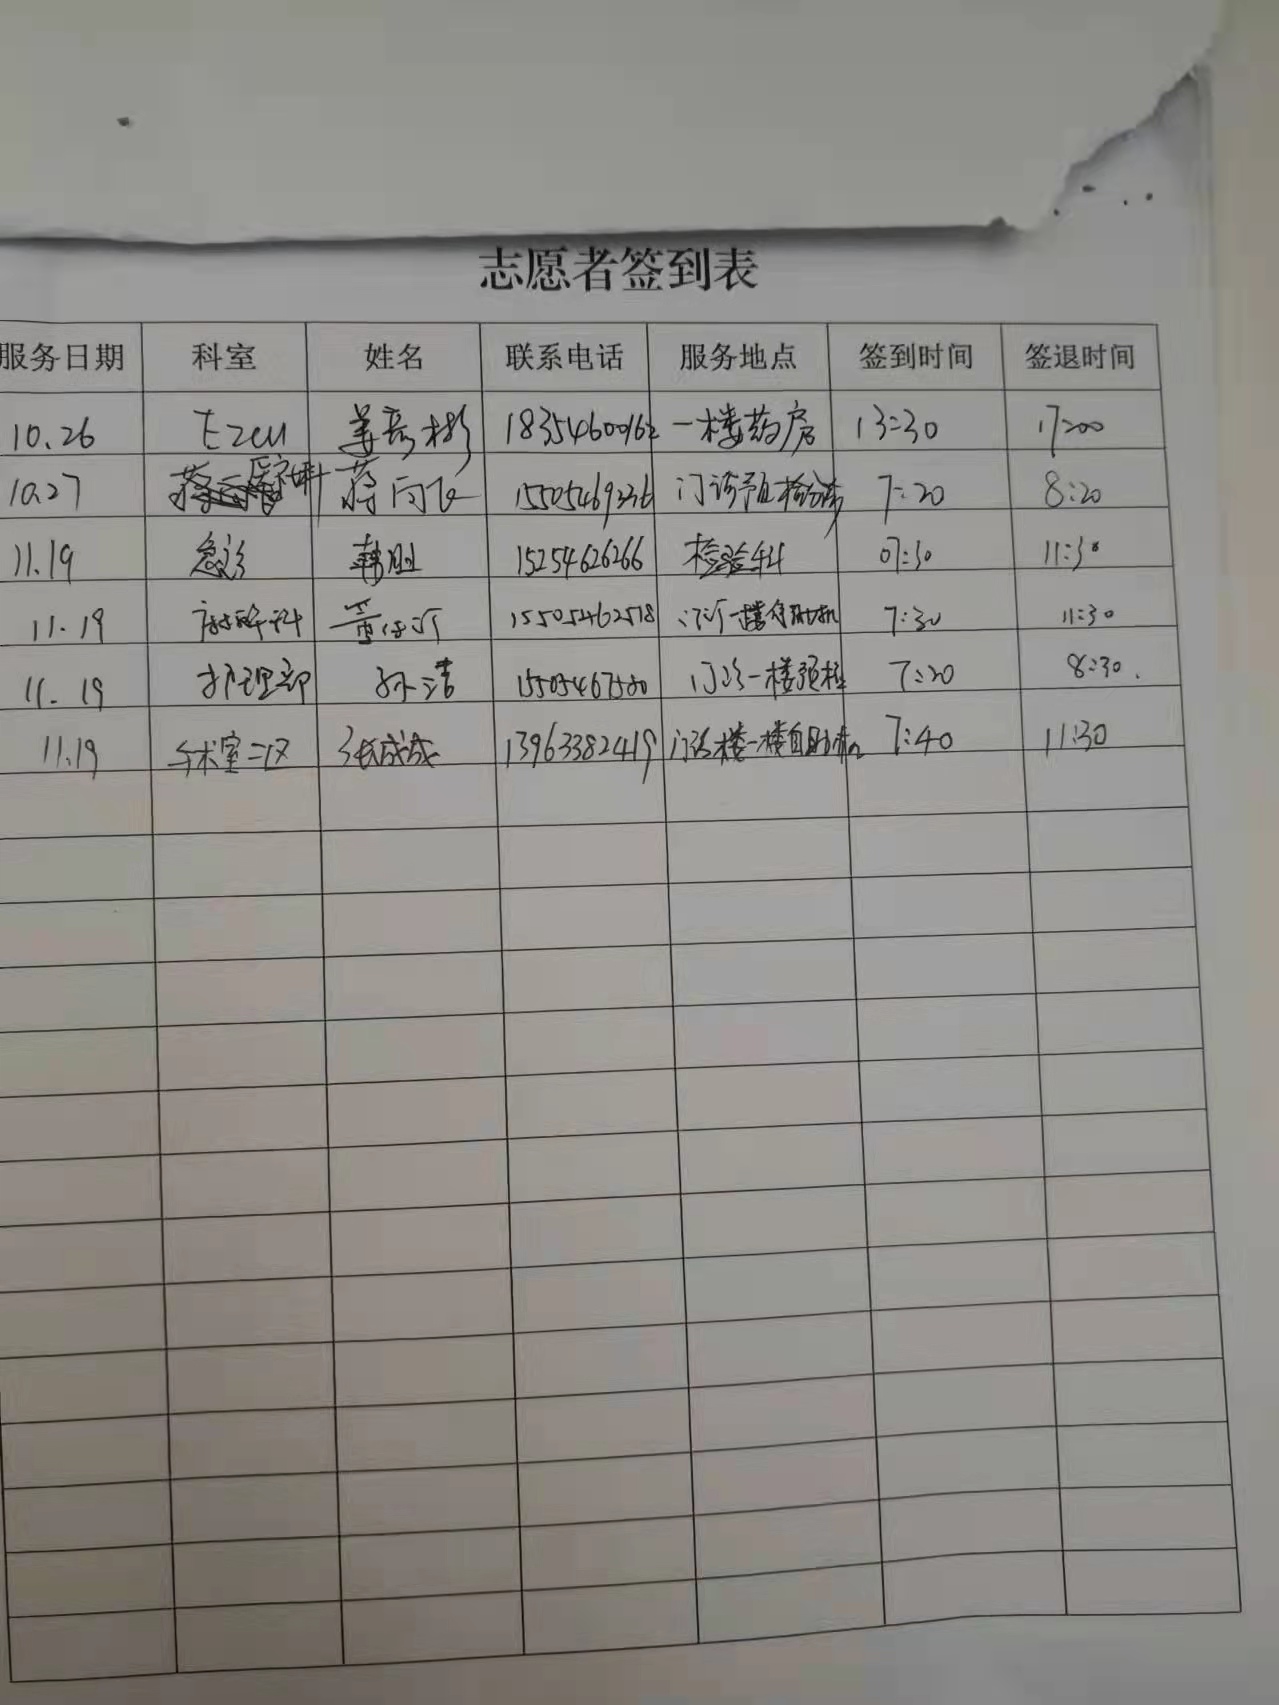 志愿者签到表
服务日期 科室 姓名 联系电话 服务地点 签到时间 签退时间
10.26 18354600162 一楼药房 13:30 17:00
10.27 蒋 15505469226 门诊预检分诊 7:20 8:20
11.19 急诊 韩胜 15254626266 检验科 07:30 11:30
11.19 麻醉科 董 15505462518 门诊一楼自助机 7:30 11:30
11.19 护理部 孙洁 15505467580 门诊一楼预检 7:20 8:30.
11.19 手术室二区 张成成 13963382419 门诊楼一楼自助机 7:40 11:30